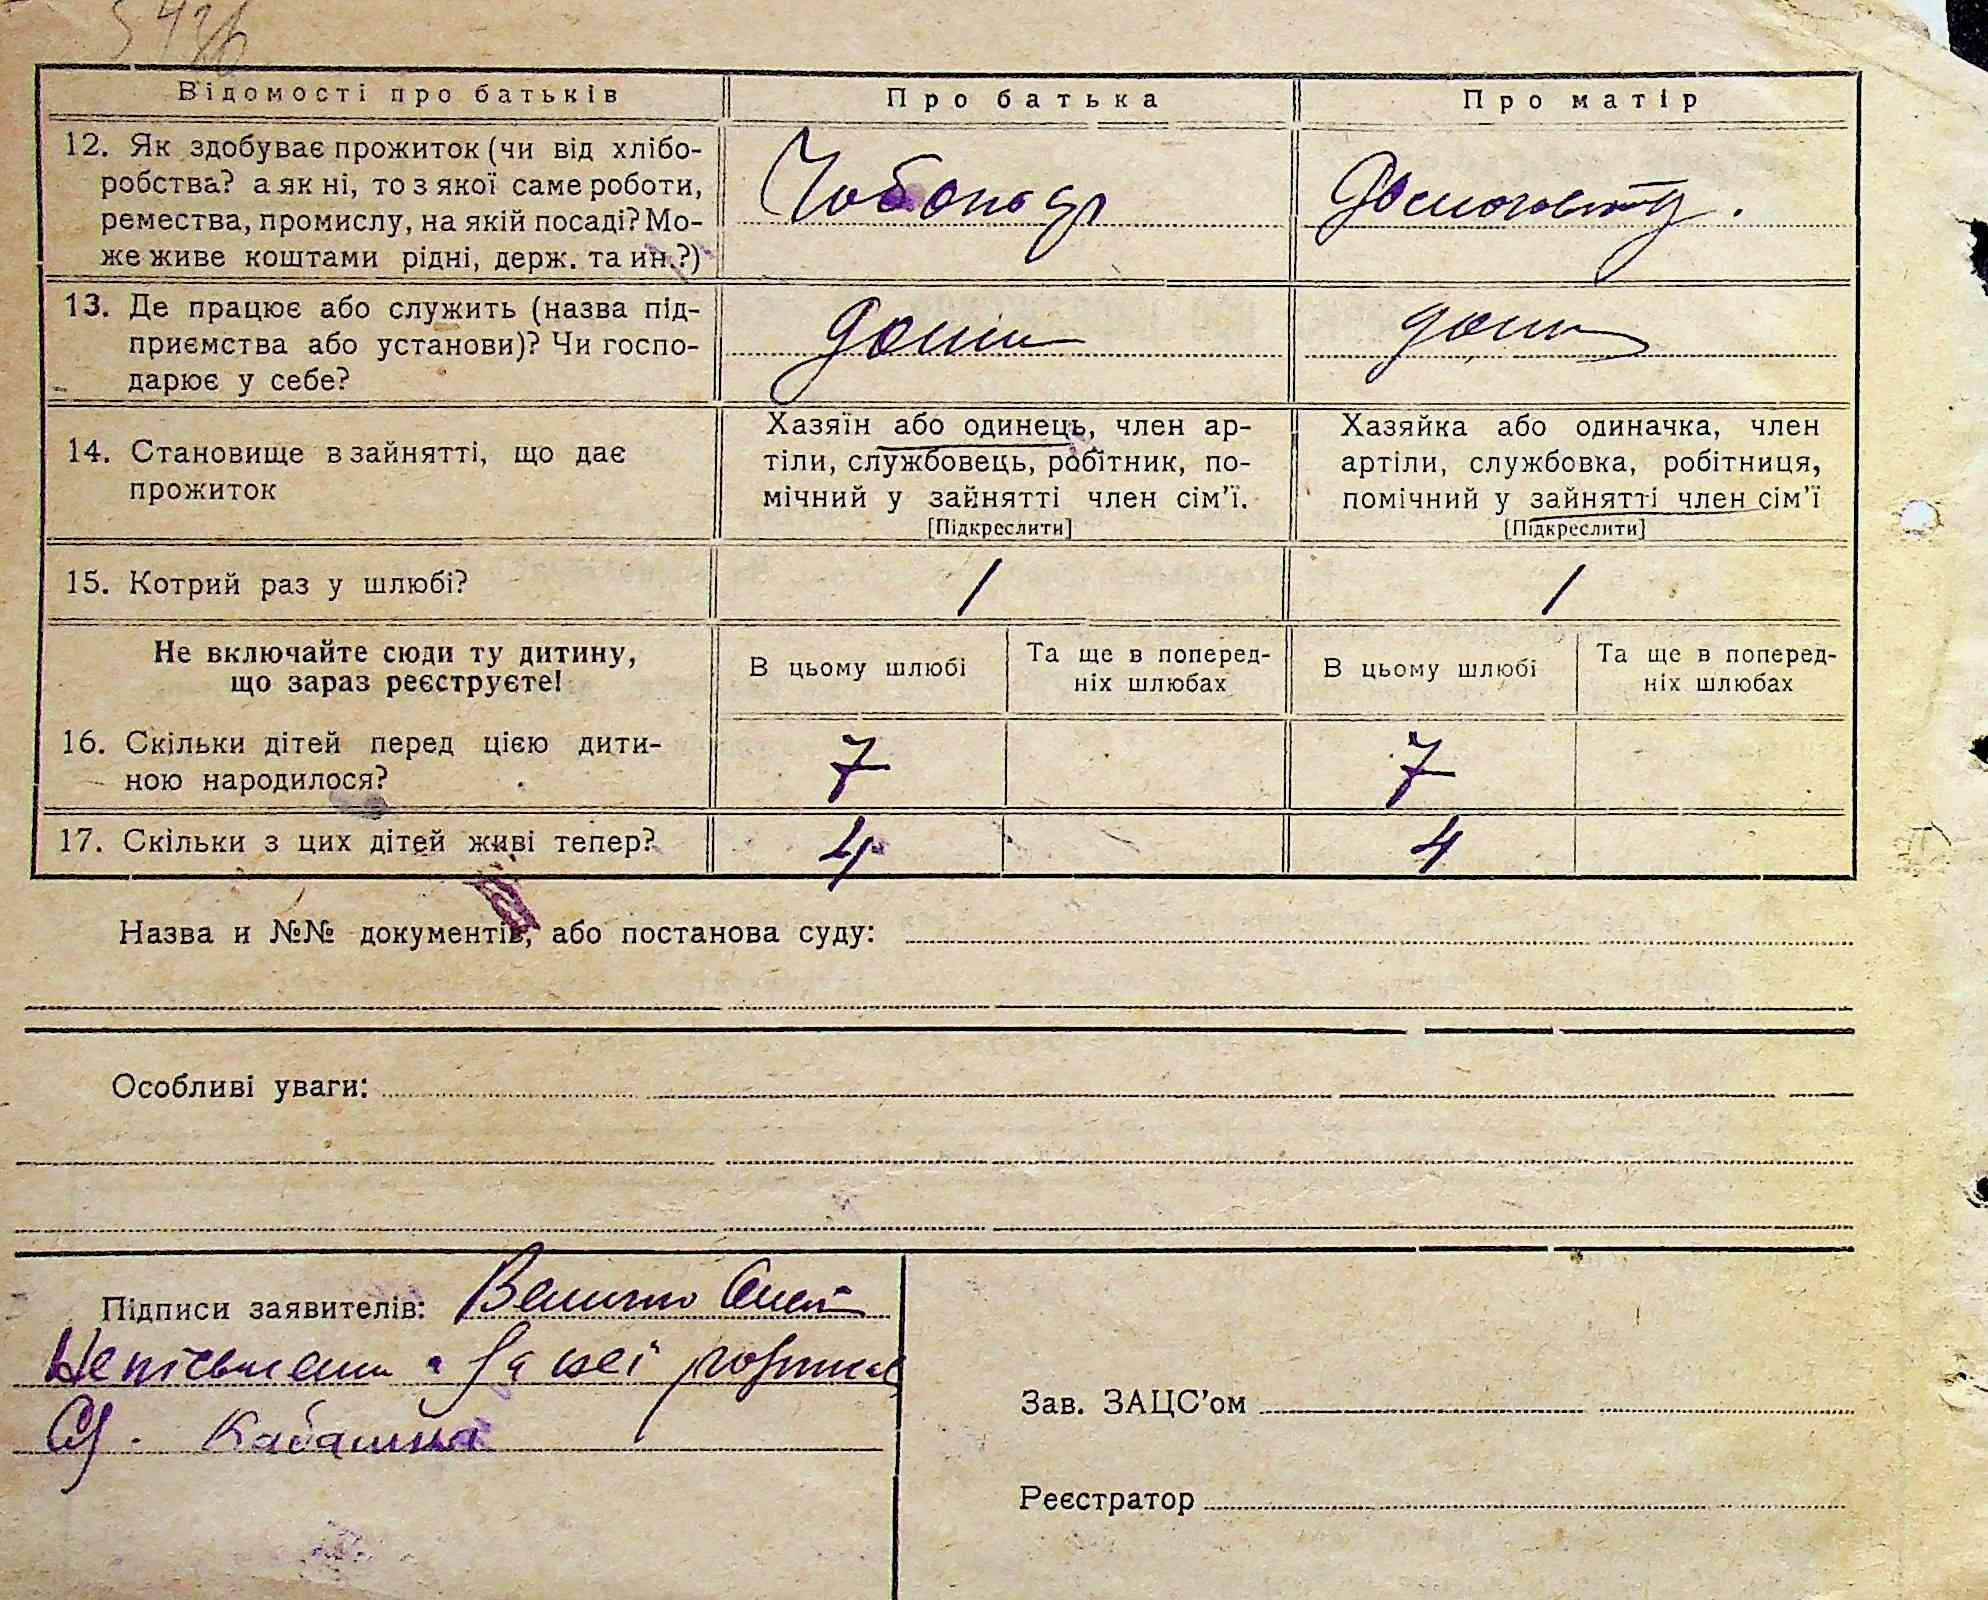 Відомості про батьків
Про батька
Про матір
12. Як здобуває прожиток (чи від хлібо-
робства? а як ні, то з якої саме роботи,
ремества, промислу, на якій посаді? Мо-
же живе коштами рідні, держ. та ин.?)
13. Де працює або служить (назва під-
приємства або установи)? Чи госпо-
дарює у себе?
дома
дома
14. Становище в зайнятті, що дає
прожиток
Хазяїн або одинець, член ар-
тіли, службовець, робітник, по-
мічний у зайнятті член сім'ї.
[Підкреслити]
Хазяйка або одиначка, член
артіли, службовка, робітниця,
помічний у зайнятті член сім'ї
[Підкреслити]
15. Котрий раз у шлюбі?
1
1
Не включайте сюди ту дитину,
що зараз реєструєте!
В цьому шлюбі
Та ще в поперед-
ніх шлюбах
В цьому шлюбі
Та ще в поперед-
ніх шлюбах
16. Скільки дітей перед цією дити-
ною народилося?
7
7
17. Скільки з цих дітей живі тепер?
4
4
Назва и №№ документів, або постанова суду:
Особливі уваги:
Підписи заявителів: Величко
За неї
Зав. ЗАЦС'ом
Реєстратор